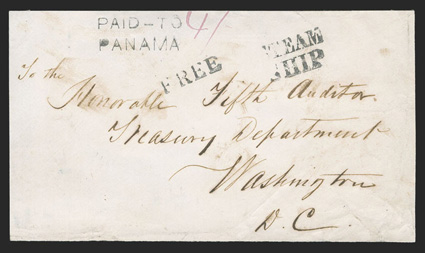 PAID-TO
PANAMA
4/
FREE
STEAM
SHIP
To the
Honorable Fifth Auditor.
Treasury Department
Washington
D.C.